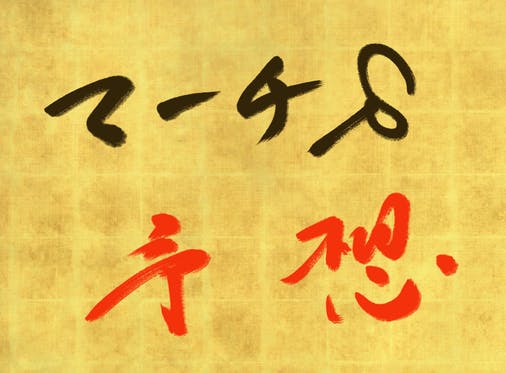 マーチS
予想